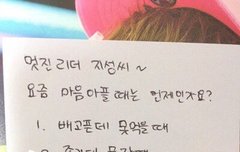 멋진리더 지성씨~
요즘 마음아플때는 언제인가요?
1. 배고픈데 못먹을때